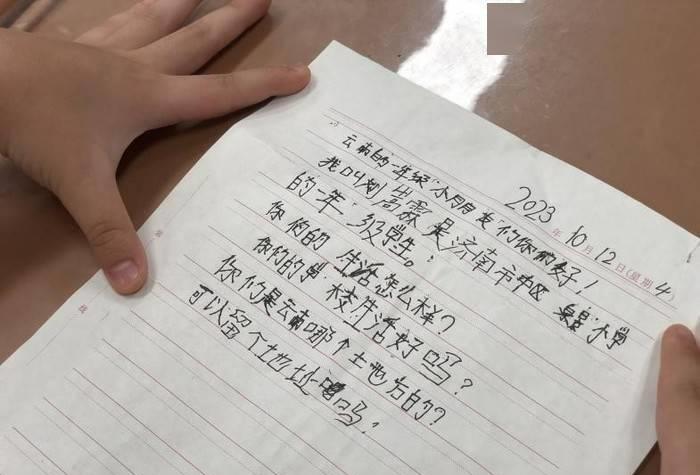 2023年10月12日(星期4)
云南的一年级小朋友们你们好!
我叫刘岩霖是济南市中区泉景小学
的一年级学生。
你们的生活怎么样?
你们的学校生活好吗?
你们是云南哪个土也方的?
可以留个地址吗!